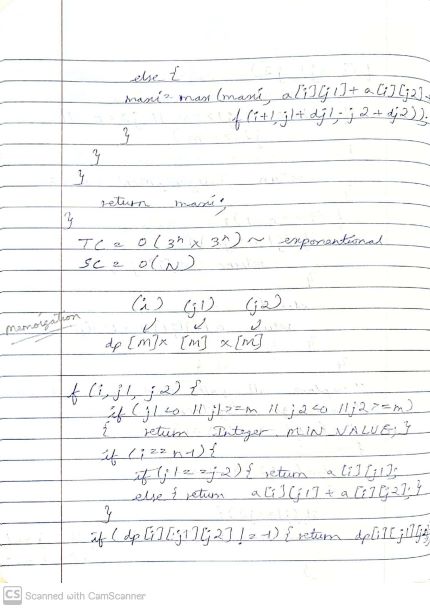 else {
maxi = max (maxi, a[i][j1] + a[i][j2] +
f(i+1, j1+dj1, j2+dj2));
}
}
}
return maxi;
}
TC = O(3^n x 3^n) ~ exponentional
SC = O(N)
(i) (j1) (j2)
memoization
dp [m] x [m] x [m]
f (i, j1, j2) {
if (j1<0 || j1>=m || j2<0 || j2>=m)
{ return Integer.MIN_VALUE; }
if (i == n-1) {
if (j1 == j2) { return a[i][j1];
else { return a[i][j1] + a[i][j2]; }
}
if (dp[i][j1][j2] != -1) { return dp[i][j1][j2]
CS Scanned with CamScanner